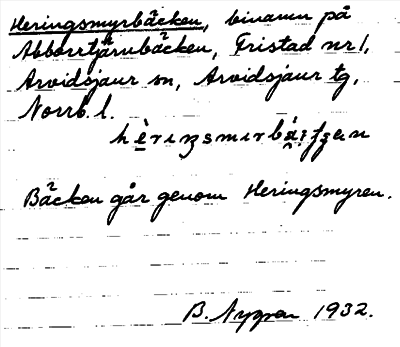 Heringsmyrbäcken, binamn på
Abborrtjärnbäcken, Fristad nr 1,
Arvidsjaur sn, Arvidsjaur tg,
Norrb. l.
Bäcken går genom Heringsmyren.
B. Nygren 1932.